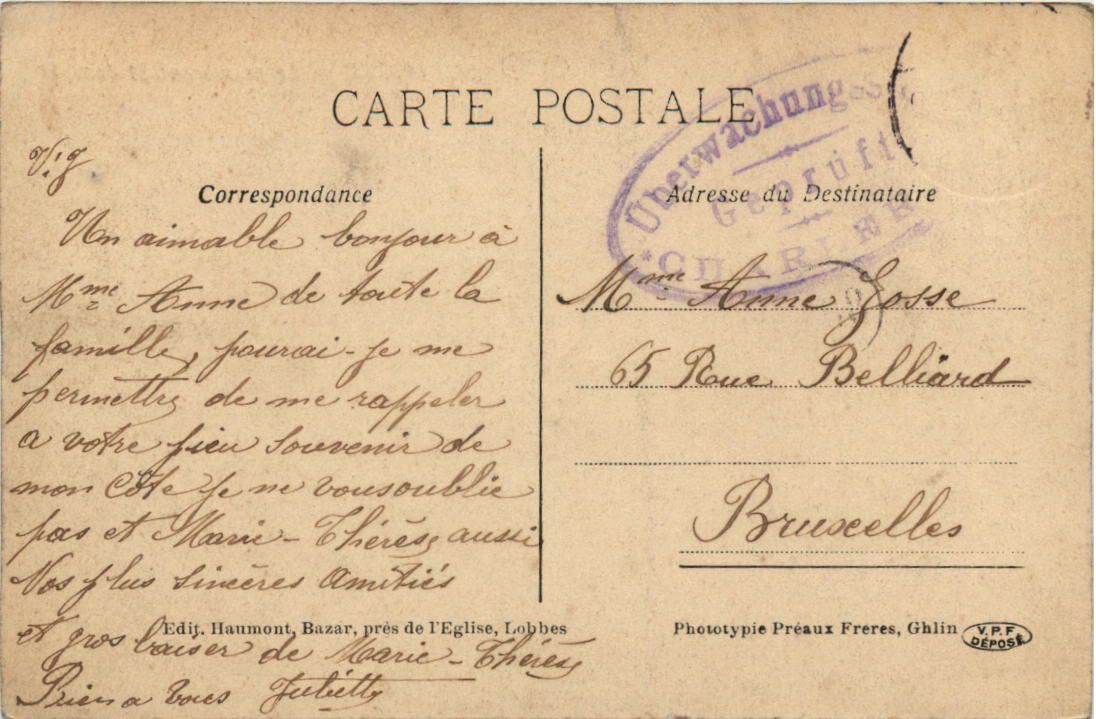 CARTE POSTALE
Überwachungss
Geprüft
*CHARLER
V.J.
Correspondance
Un aimable bonjour à
Mme Anne de toute la
famille, pourai-je me
permettre de me rappeler
a votre pieu souvenir de
mon Côte je ne vousoublie
pas et Marie-Thérèse aussi
Vos plus sincères Amitiés
et gros baiser de Marie-Thérèse
Bien a vous Juliette
Adresse du Destinataire
Mme Anne Josse
65 Rue Belliard
Bruxelles
Edit. Haumont, Bazar, près de l'Eglise, Lobbes
Phototypie Préaux Freres, Ghlin
V.P.F
DÉPOSÉ